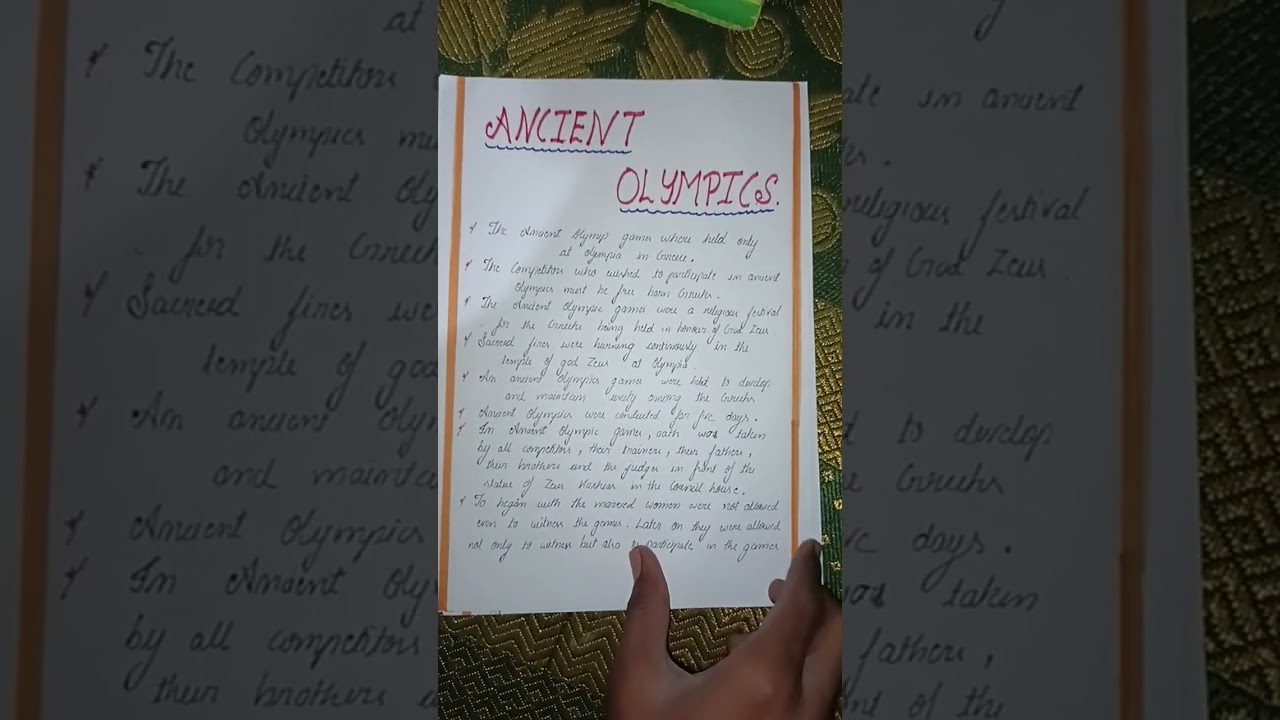 ANCIENT
OLYMPICS.
The Ancient Olymp games where held only
at Olympia in Greece.
The Competitors who wished to participate in ancient
Olympics must be free born Greeks.
The Ancient Olympic games were a religious festival
for the Greeks being held in honour of God Zeus.
Sacred fires were burning continously in the
temple of god Zeus at Olympia.
An ancient Olympics games were held to develop
and maintain unity among the Greeks
Ancient Olympics were conducted for five days.
In Ancient Olympic games, oath was taken
by all competitors, their trainers, their fathers,
their brothers and the judges in front of the
statue of Zeus in the Council house.
To began with the married women were not allowed
even to witness the games. Later on they were allowed
not only to witness but also to participate in the games